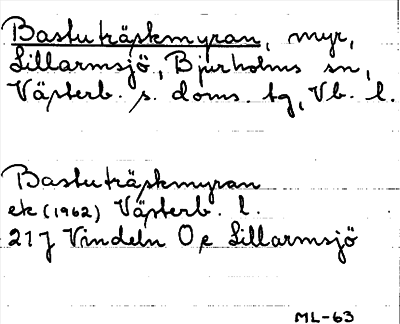 Bastuträskmyran, myr,
Lillarmsjö, Bjurholms sn,
Västerb. s. doms. tg, Vb. l.
Bastuträskmyran
ek (1962) Västerb. l.
21 J Vindeln 0e Lillarmsjö
ML-63